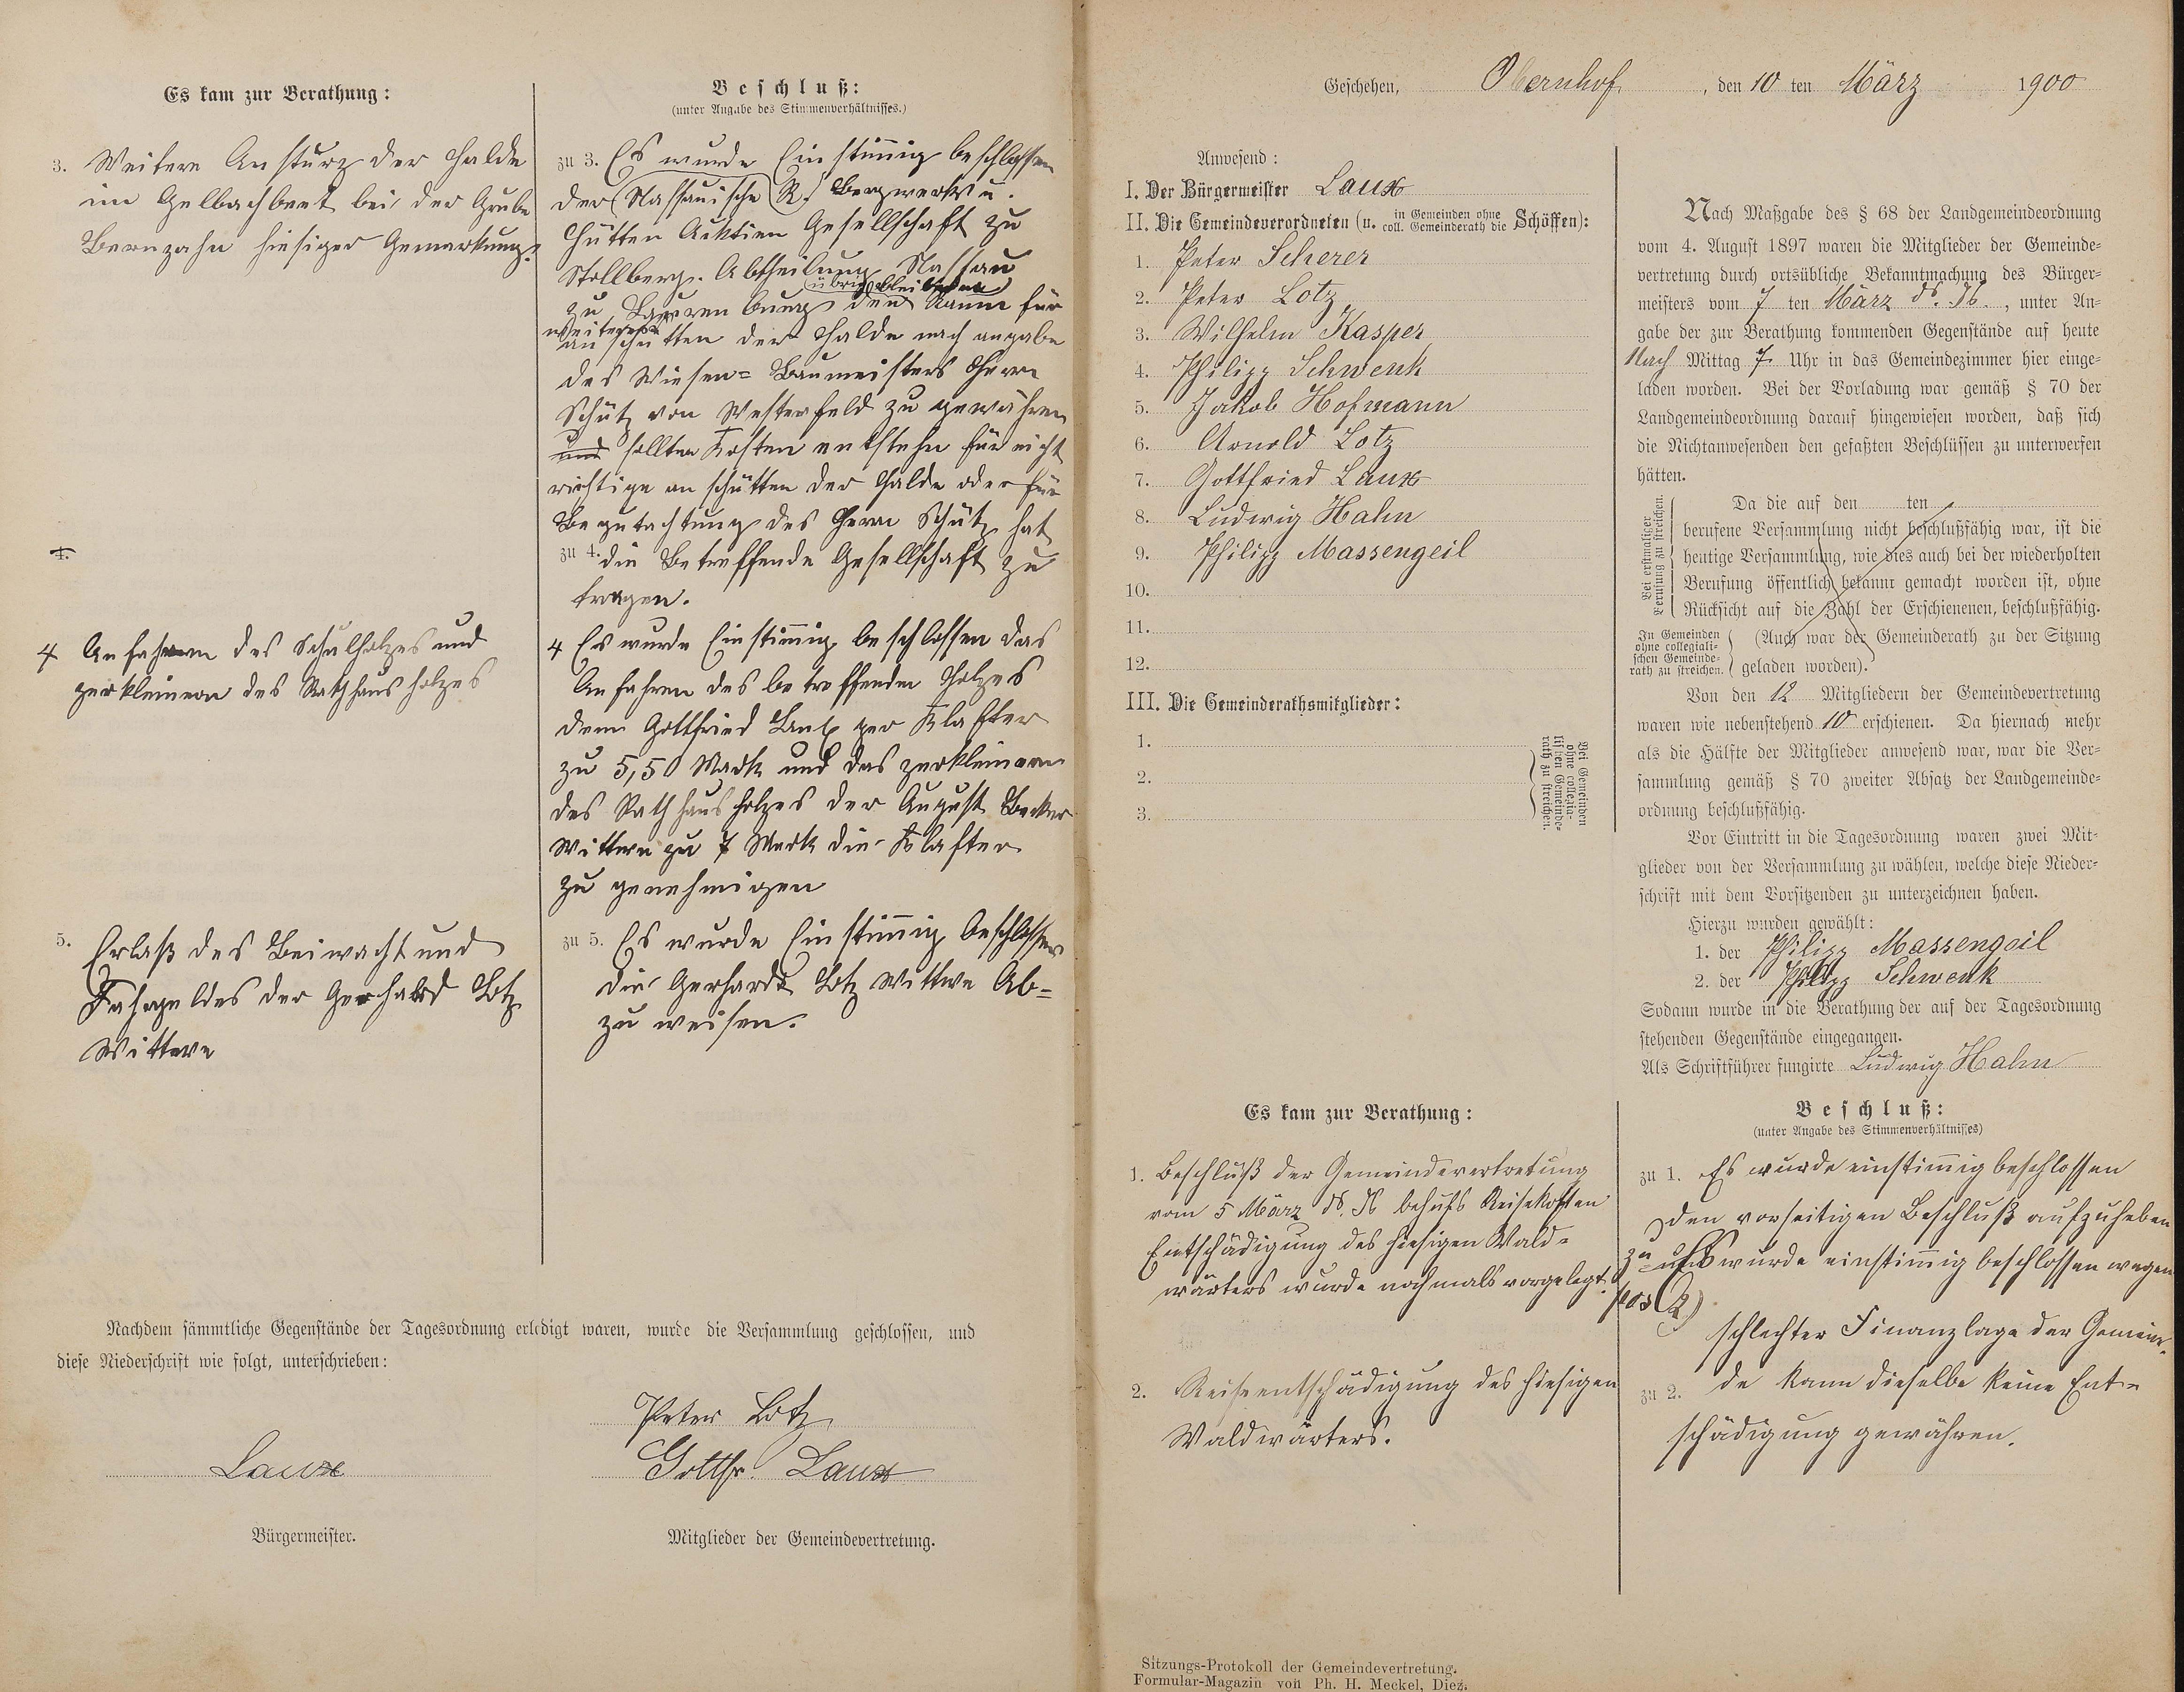 Es kam zur Berathung:
3. Weitere Ansturz der Halde
im Gelbachbeet bei der Grube
Bernzahn hiesiger Gemarkung.
4.
4 Anfahren des Schulholzes und
zerkleinern des Rathhaus holzes
5. Erlaß des Beiwacht und
Fahrgeldes der Gerhard Lotz
Wittwe
Beschluß:
(unter Angabe des Stimmenverhältnisses.)
zu 3. Es wurde Einstimmig beschlossen
der (Nassauische) (R.) Bergwerks u.
Hütten Acktien Gesellschaft zu
Stollberg. Abtheilung Nassau
(übrig bleibenden)
zu Laurenburg den Raum für
weiteres
anschütten der Halde nach angabe
des Wiesen= Baumeisters Herrn
Schütz von Westerfeld zu gewähren
und sollten Kosten entstehn für nicht
richtige an schütten der Halde oder für
Begutachtung des Herrn Schütz hat
zu 4. die Betreffende Gesellschaft zu
tragen.
4 Es wurde Einstimmig beschlossen das
Anfahren des betreffenden Holzes
dem Gottfried Laux per Klafter
zu 5,50 Mark und das zerkleinern
des Rathhaus holzes der August Becker
Wittwe zu 7 Mark die Klafter
zu genehmigen
zu 5. Es wurde Einstimmig beschlossen
die Gerhardt Lotz Wittwe Ab=
zu weisen.
Nachdem sämmtliche Gegenstände der Tagesordnung erledigt waren, wurde die Versammlung geschlossen, und
diese Niederschrift wie folgt, unterschrieben:
Peter Lotz
Laux
Gottfr. Laux
Bürgermeister.
Mitglieder der Gemeindevertretung.
Geschehen, Obernhof, den 10 ten März 1900
Anwesend:
I. Der Bürgermeister Laux
II. Die Gemeindeverordneten (u. in Gemeinden ohne coll. Gemeinderath die Schöffen):
1. Peter Scherer
2. Peter Lotz
3. Wilhelm Kasper
4. Philipp Schwenk
5. Jakob Hofmann
6. Arnold Lotz
7. Gottfried Laux
8. Ludwig Hahn
9. Philipp Massengeil
10.
11.
12.
III. Die Gemeinderathsmitglieder:
1.
2.
3.
Bei Gemeinden
ohne collegia-
lischen Gemeinde-
rath zu streichen.
Nach Maßgabe des § 68 der Landgemeindeordnung
vom 4. August 1897 waren die Mitglieder der Gemeinde-
vertretung durch ortsübliche Bekanntmachung des Bürger-
meisters vom 7 ten März ds. Js., unter An-
gabe der zur Berathung kommenden Gegenstände auf heute
Nach Mittag 7 Uhr in das Gemeindezimmer hier einge-
laden worden. Bei der Vorladung war gemäß § 70 der
Landgemeindeordnung darauf hingewiesen worden, daß sich
die Nichtanwesenden den gefaßten Beschlüssen zu unterwerfen
hätten.
Bei erstmaliger
Berufung zu streichen.
Da die auf den ten
berufene Versammlung nicht beschlußfähig war, ist die
heutige Versammlung, wie dies auch bei der wiederholten
Berufung öffentlich bekannt gemacht worden ist, ohne
Rücksicht auf die Zahl der Erschienenen, beschlußfähig.
In Gemeinden
ohne collegiali-
schen Gemeinde-
rath zu streichen.
(Auch war der Gemeinderath zu der Sitzung
geladen worden).
Von den 12 Mitgliedern der Gemeindevertretung
waren wie nebenstehend 10 erschienen. Da hiernach mehr
als die Hälfte der Mitglieder anwesend war, war die Ver-
sammlung gemäß § 70 zweiter Absatz der Landgemeinde-
ordnung beschlußfähig.
Vor Eintritt in die Tagesordnung waren zwei Mit-
glieder von der Versammlung zu wählen, welche diese Nieder-
schrift mit dem Vorsitzenden zu unterzeichnen haben.
Hierzu wurden gewählt:
1. der Philipp Massengeil
2. der Philipp Schwenk
Sodann wurde in die Berathung der auf der Tagesordnung
stehenden Gegenstände eingegangen.
Als Schriftführer fungirte Ludwig Hahn
Es kam zur Berathung:
1. Beschluß der Gemeindevertretung
vom 5 März ds. Js behufs Reisekosten
Entschädigung des hiesigen Wald-
wärters wurde nochmals vorgelegt.
2. Reiseentschädigung des hiesigen
Waldwärters.
Beschluß:
(unter Angabe des Stimmenverhältnisses)
zu 1. Es wurde einstimmig beschlossen
den vorseitigen Beschluß aufzuheben
zu Es wurde einstimmig beschlossen wegen
pos (2)
schlechter Finanzlage der Gemein-
zu 2. de kann dieselbe keine Ent-
schädigung gewähren.
Sitzungs-Protokoll der Gemeindevertretung.
Formular-Magazin von Ph. H. Meckel, Diez.